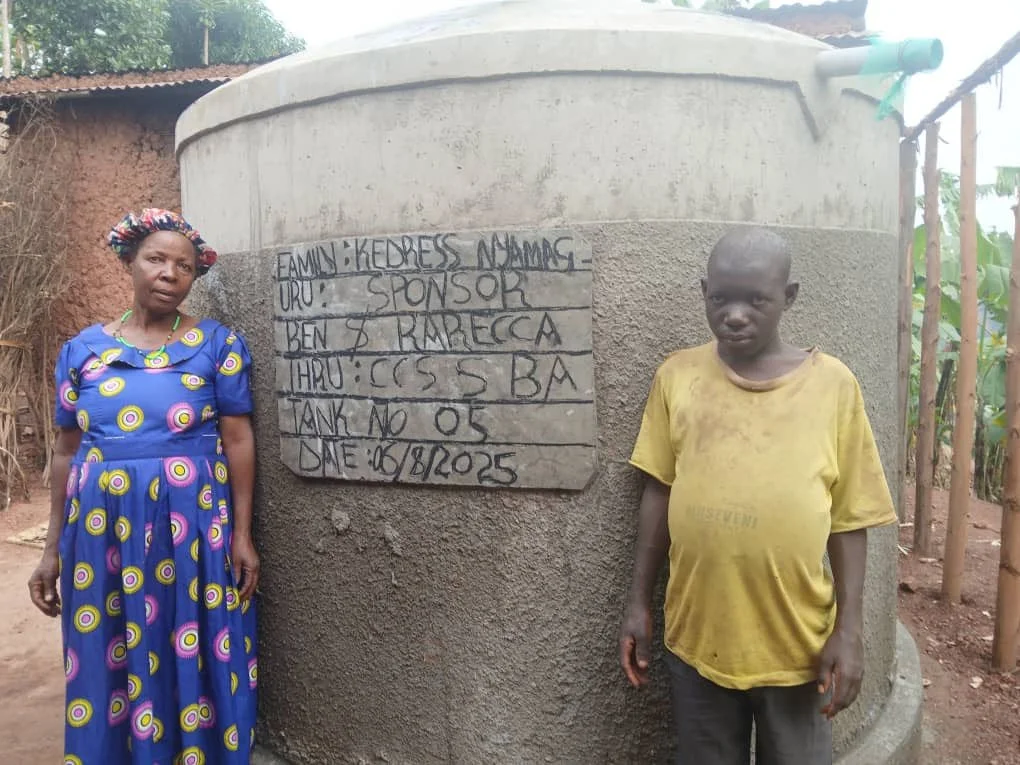 FAMILY : KEDRESS NYAMAG-
URU : SPONSOR
BEN $ RARECCA
THRU : CCS S BA
TANK NO 05
DATE : 06/8/2025
MUSEVENI